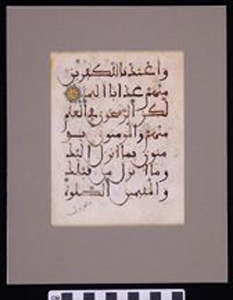 واعتدنا للكفرين
منهم عذابا اليما
لكن الرسخون في العلم
منهم والمومنون يو
منون بما انزل اليك
وما انزل من قبلك
والمقيمين الصلوة
CM